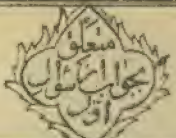 متعلق
بجواب از سوال
اول